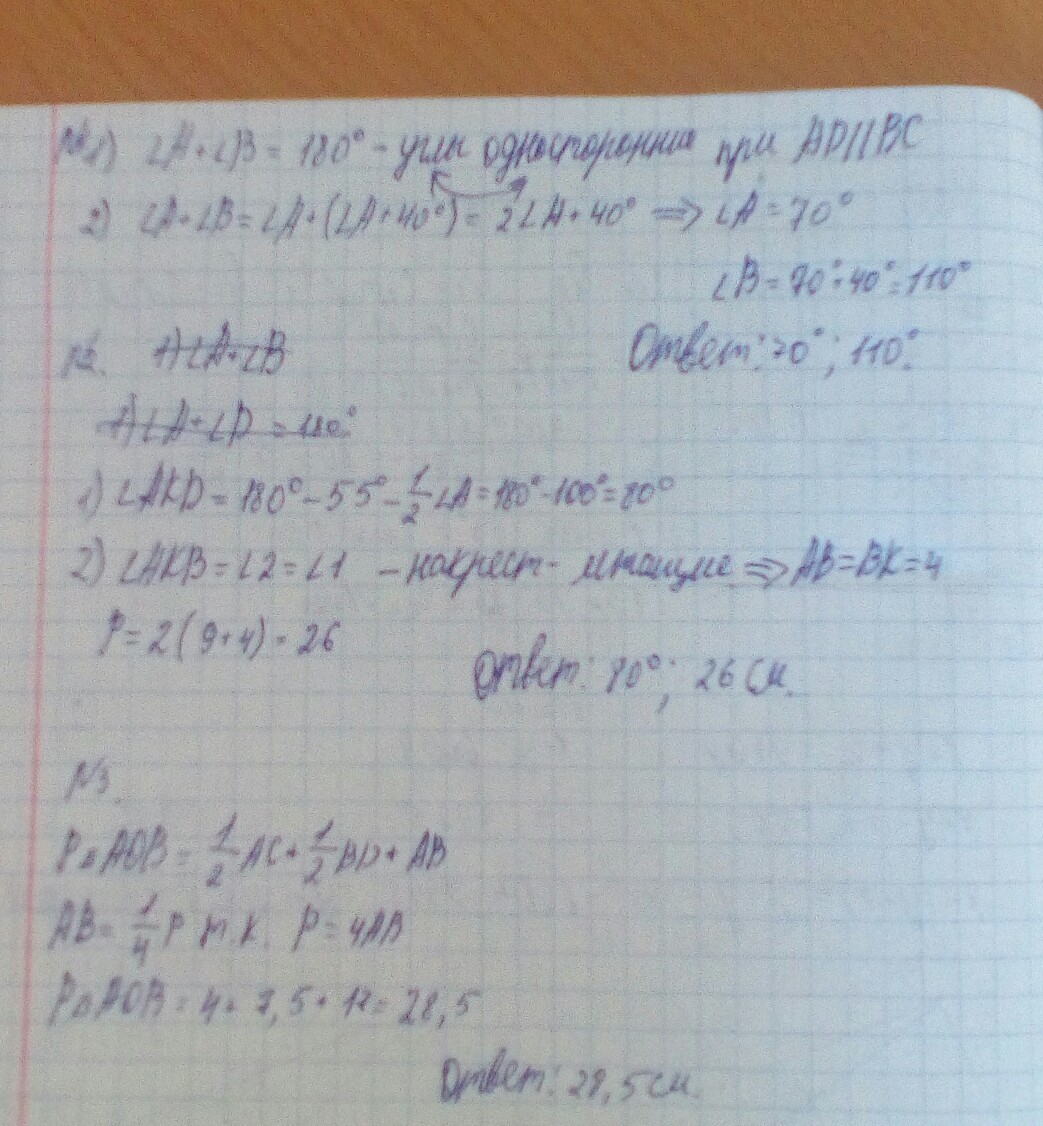 №1) ∠A+∠B = 180° - углы односторонние при AD||BC
2) ∠A+∠B = ∠A+(∠A+40°) = 2∠A+40° ⟹ ∠A = 70°
∠B = 70°+40°=110°
Ответ: 70°; 110°.
№2. 1) ∠A+∠B
1) ∠A+∠D = 180°
1) ∠AKD = 180° - 55° - 1/2 ∠A = 180° - 100° = 80°
2) ∠AKB = ∠2 = ∠1 - накрест-лежащие ⟹ AB=BK=4
P = 2(9+4) = 26
Ответ: 80°; 26 см.
№3.
P△AOB = 1/2 AC + 1/2 BD + AB
AB = 1/4 P т.к. P = 4AB
P△AOB = 4+7,5+17= 28,5
Ответ: 28,5 см.